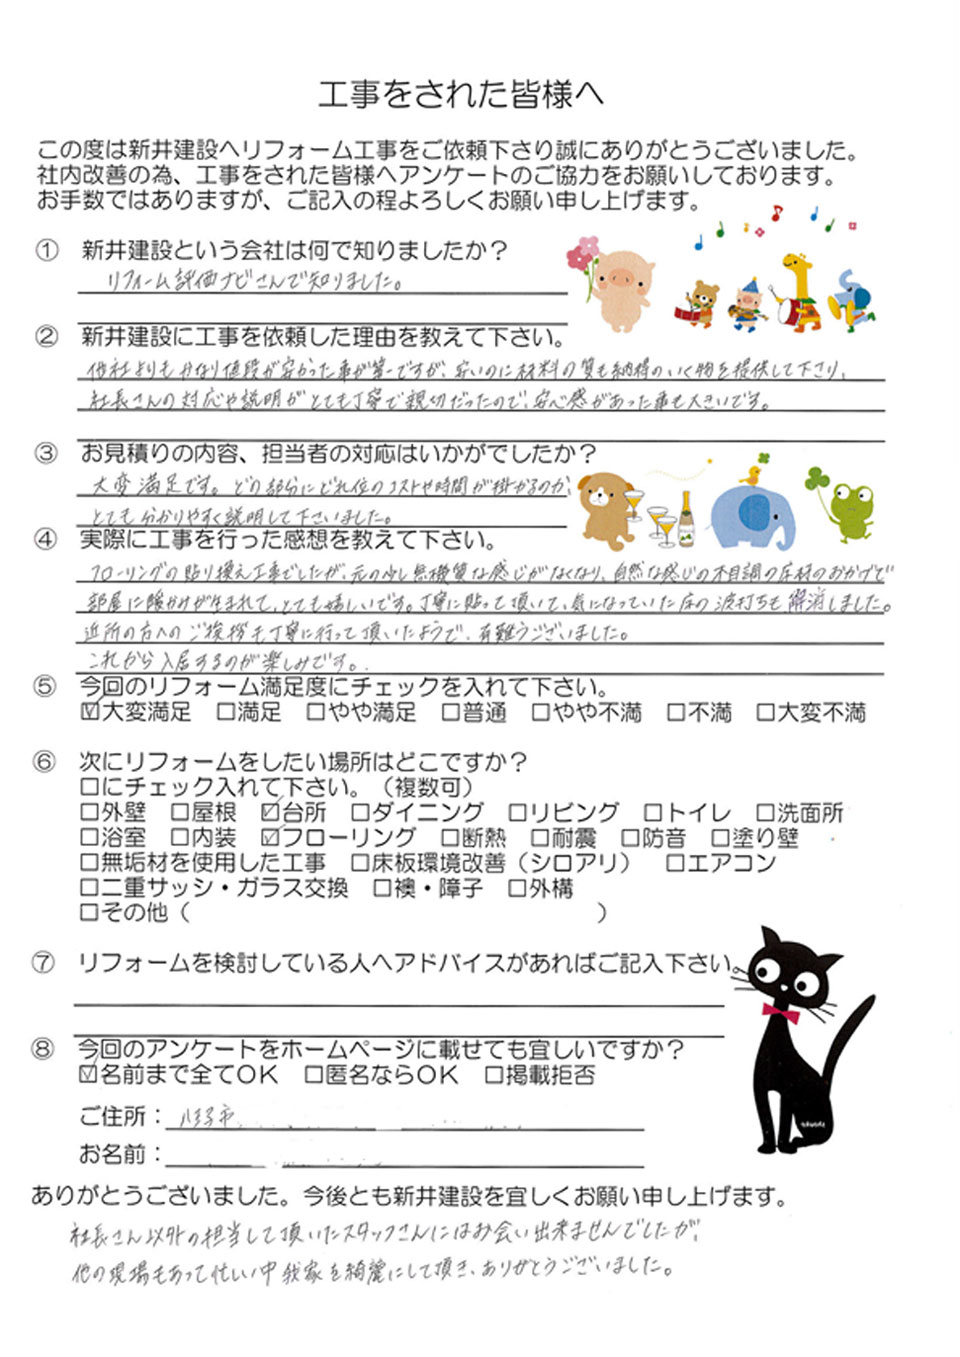 工事をされた皆様へ
この度は新井建設へリフォーム工事をご依頼下さり誠にありがとうございました。
社内改善の為、工事をされた皆様へアンケートのご協力をお願いしております。
お手数ではありますが、ご記入の程よろしくお願い申し上げます。
① 新井建設という会社は何で知りましたか？
リフォーム評価ナビさんで知りました。
② 新井建設に工事を依頼した理由を教えて下さい。
他社よりもかなり値段が安かった事が第一ですが、安いのに材料の質も納得のいく物を提供して下さり、
社長さんの対応や説明がとても丁寧で親切だったので、安心感があった事も大きいです。
③ お見積りの内容、担当者の対応はいかがでしたか？
大変満足です。どの部分にどれ位のコストや時間が掛かるのか、
とても分かりやすく説明して下さいました。
④ 実際に工事を行った感想を教えて下さい。
フローリングの貼り換え工事でしたが、元の少し無機質な感じがなくなり、自然な感じの木目調の床材のおかげで
部屋に暖かみが生まれて、とても嬉しいです。丁寧に貼って頂いて、気になっていた床の波打ちも解消しました。
近所の方へのご挨拶も丁寧に行って頂いたようで、有難うございました。
これから入居するのが楽しみです。
⑤ 今回のリフォーム満足度にチェックを入れて下さい。
☑大変満足 □満足 □やや満足 □普通 □やや不満 □不満 □大変不満
⑥ 次にリフォームをしたい場所はどこですか？
□にチェック入れて下さい。（複数可）
□外壁 □屋根 ☑台所 □ダイニング □リビング □トイレ □洗面所
□浴室 □内装 ☑フローリング □断熱 □耐震 □防音 □塗り壁
□無垢材を使用した工事 □床板環境改善（シロアリ） □エアコン
□二重サッシ・ガラス交換 □襖・障子 □外構
□その他（ ）
⑦ リフォームを検討している人へアドバイスがあればご記入下さい。
⑧ 今回のアンケートをホームページに載せても宜しいですか？
☑名前まで全てOK □匿名ならOK □掲載拒否
ご住所：八王子市
お名前：
ありがとうございました。今後とも新井建設を宜しくお願い申し上げます。
社長さん以外の担当して頂いたスタッフさんにはお会い出来ませんでしたが、
他の現場もあって忙しい中我家を綺麗にして頂き、ありがとうございました。